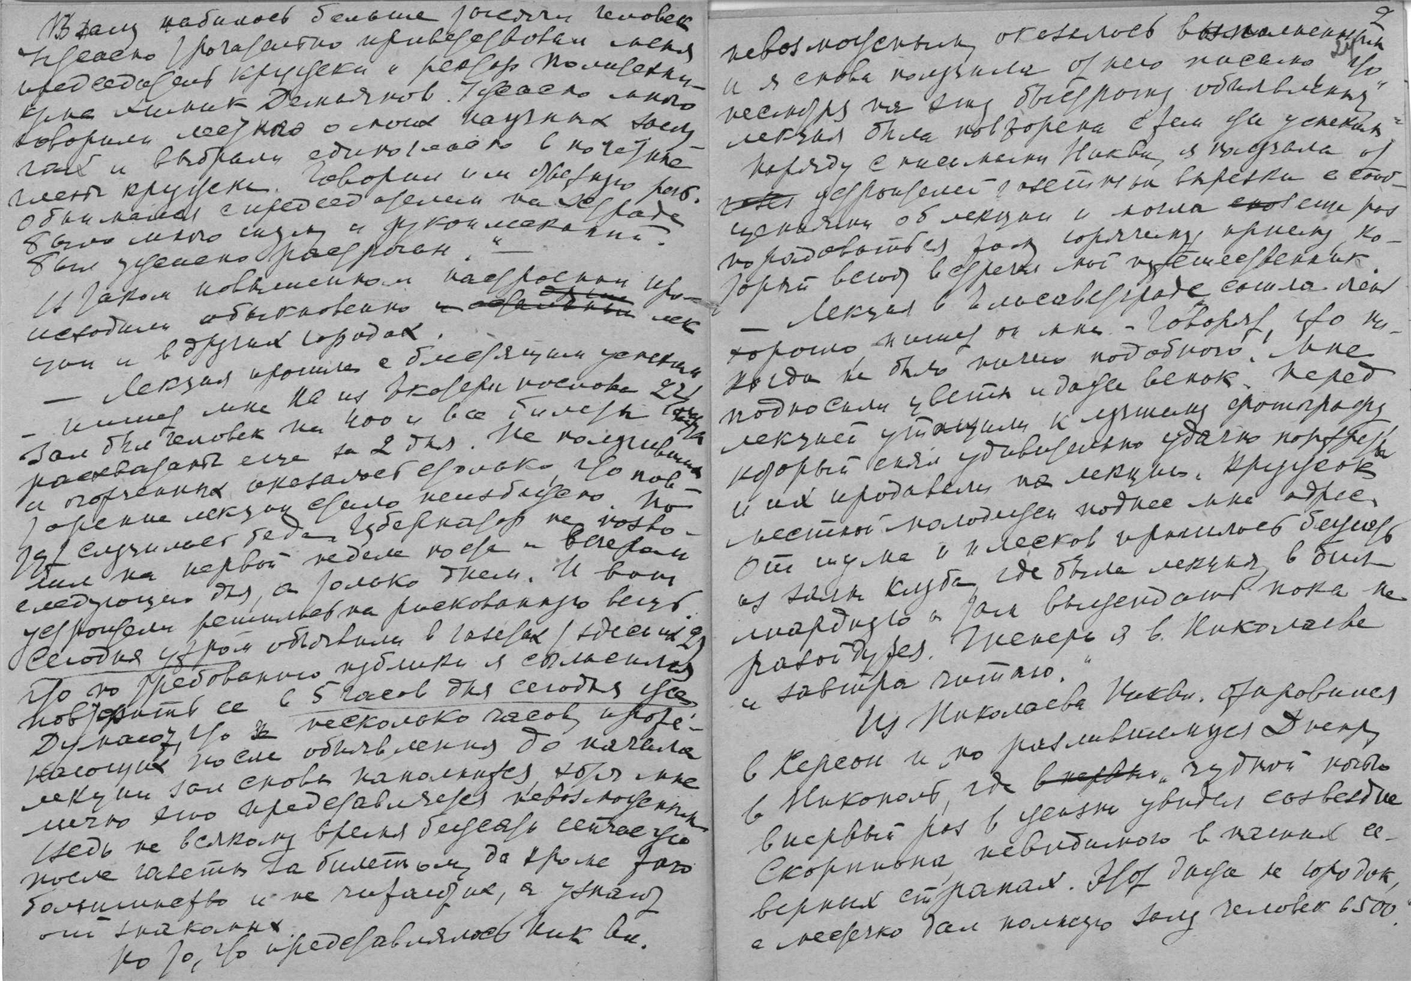 В залу набилось больше тысячи человек
Ужасно трогательно приветствовали меня
председатель кружка и ректор Политехни-
кума химик Демьянов. Ужасно много
говорили лестного о моих научных заслу-
гах и выбрали единогласно в почетные
члены кружка. Говорил им ответную речь.
Обнимался с председателем на эстраде
было много шуму и рукоплесканий.
был ужасно растроган."
В таком повышенном настроении про-
исходили обыкновенно лек
ции и в других городах.
— Лекция прошла с блестящим успехом
– пишет мне Ник из Екатеринослава 22/
Зал был человек на 400 и все билеты
расхватаны еще за 2 дня. Не получивших
и огорченных оказалось столько, что пов
торение лекции стало неизбежно. Но
тут случилась беда. Губернатор не позво-
лил на первой неделе поста и вечерами
следующего дня а только днем. И вот
устроители решились на рискованную вещь.
Сегодня утром объявили в газетах (здешних 2)
что по требованию публики я согласился
повторить ее в 5 часов дня сегодня же
Думают, что в несколько часов, проте-
кающих после объявления до начала
лекции зал снова наполнится, хотя мне
лично это представляется невозможным
Ведь не всякому время бежать сейчас же
после газеты за билетом, да кроме того
большинство и не читающих, а узнают
от знакомых.
Но то, что представлялось Ник. Ал.
2
невозможным, оказалось выполненным
и я снова получила от него письмо что
несмотря на эту быстроту объявления"
лекция была повторена с тем же успехом
Наряду с письмами Ник Ал, я получала от
устроителей газетные вырезки с сооб-
щениями об лекции и могла еще раз
порадоваться тому горячему приему ко-
торый всюду встречал мой путешественник.
— Лекция в Елисаветграде сошла тоже
хорошо пишет он мне – Говорят, что ни-
когда не было ничего подобного. Мне
подносили цветы и даже венок. Перед
лекцией утащили к лучшему фотографу
который снял удивительно удачно портреты
и их продавали на лекции. Кружок
местной молодежи поднес мне адрес
От шума и плесков пришлось бежать
из залы клуба, где была лекция, в бил-
лиардную и там выжидать пока не
разойдутся. Теперь я в Николаеве
и завтра читаю."
Из Николаева Ник Ал. отправился
в Херсон и по разлившемуся Днепру
в Никополь, где чудной ночью
впервый раз в жизни увидел созвездие
Скорпиона, невидимого в наших се-
верных странах. Этот даже не городок,
а местечко дал полную залу человек в 500.